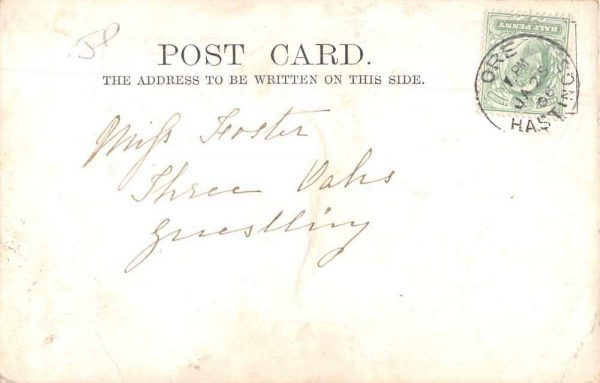 POST CARD.
THE ADDRESS TO BE WRITTEN ON THIS SIDE.
HALF PENNY
ORE
PM
JA 23
06
HASTINGS
Miss Foster
Three Oaks
Guestling